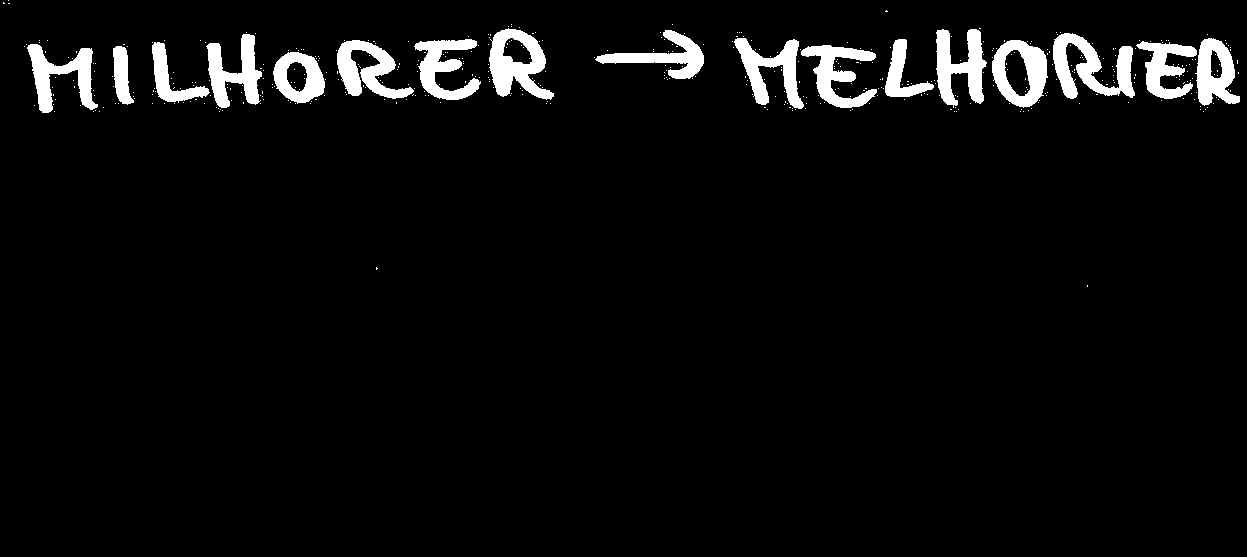 MILHORER → MELHORIER